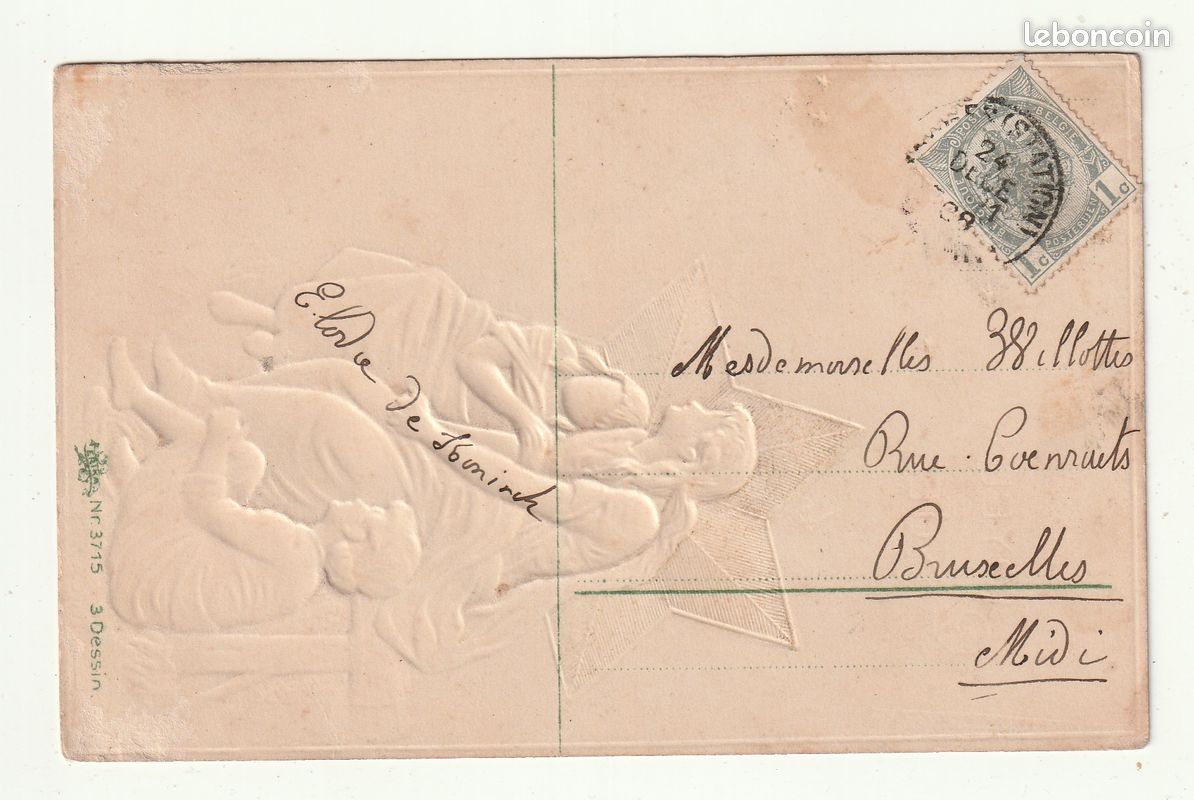 leboncoin
(STATION)
24
DECE
11
08
POSTE BELGIE
BELGIQUE POSTERIJEN
1 c
1 c
Mesdemoiselles Willottes
Rue. Coenraets
Bruxelles
Midi
Elodie
de Koninck
Nr. 3715 3 Dessin.